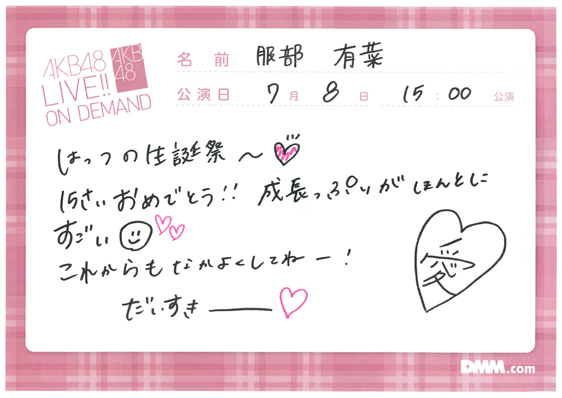 AKB48
LIVE!!
ON DEMAND
AKB
48
名前 服部 有菜
公演日 7月8日 15:00 公演
はっつの生誕祭〜
15さいおめでとう!! 成長っぷりがほんとに
すごい
これからもなかよくしてねー!
だいすき———
DMM.com